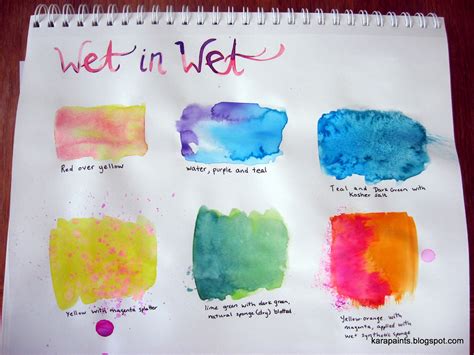 Wet in Wet
Red over yellow
water, purple and teal
Teal and Dark Green with
Kosher salt
Yellow with magenta splatter
lime green with dark green,
natural sponge (dry) blotted
Yellow-orange with
magenta, applied with
wet synthetic sponge
karapaints.blogspot.com